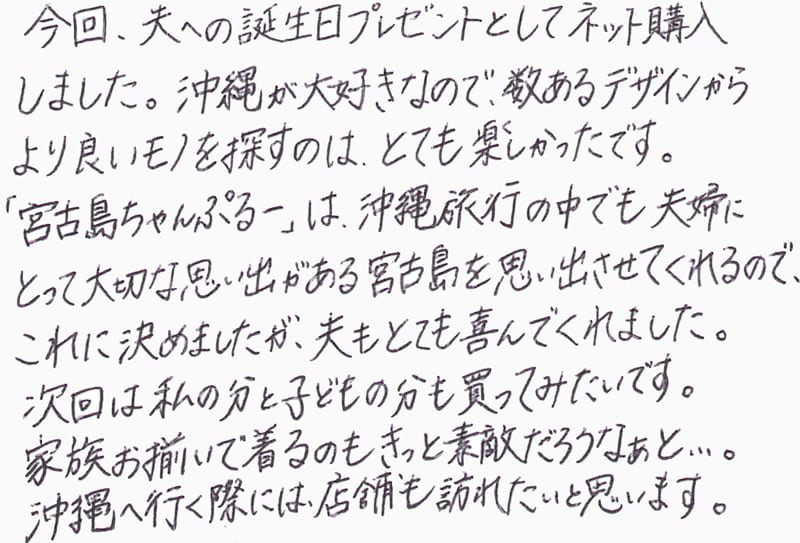 今回、夫への誕生日プレゼントとしてネット購入
しました。沖縄が大好きなので、数あるデザインから
より良いモノを探すのは、とても楽しかったです。
「宮古島ちゃんぷるー」は、沖縄旅行の中でも夫婦に
とって大切な思い出がある宮古島を思い出させてくれるので、
これに決めましたが、夫もとても喜んでくれました。
次回は私の分と子どもの分も買ってみたいです。
家族お揃いで着るのもきっと素敵だろうなぁと…。
沖縄へ行く際には、店舗も訪れたいと思います。